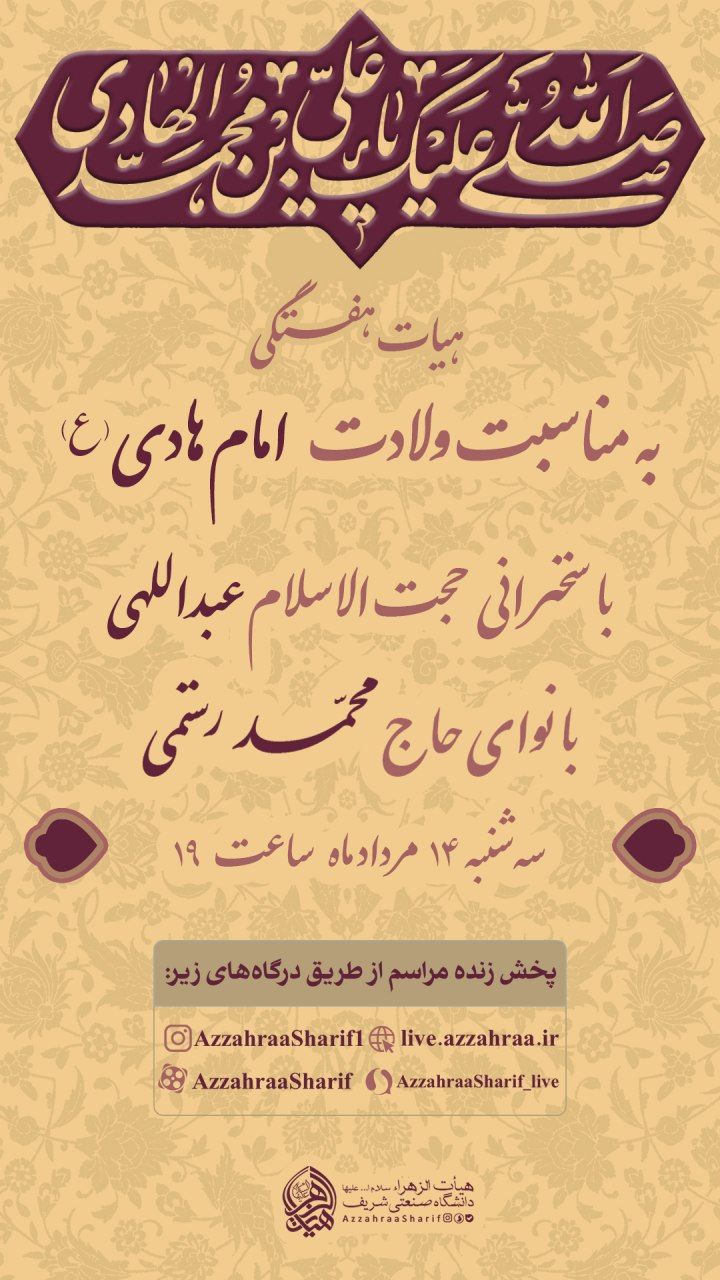 صلی الله علیک یا علی بن محمد الهادی
هیات هفتگی
به مناسبت ولادت امام هادی (ع)
با سخنرانی حجت الاسلام عبداللهی
با نوای حاج محمّد رستمی
سه شنبه ۱۴ مردادماه ساعت ۱۹
پخش زنده مراسم از طریق درگاه‌های زیر:
live.azzahraa.ir AzzahraaSharif1
AzzahraaSharif_live AzzahraaSharif
هیأت الزهراء سلام ا... علیها
دانشگاه صنعتی شریف
AzzahraaSharif